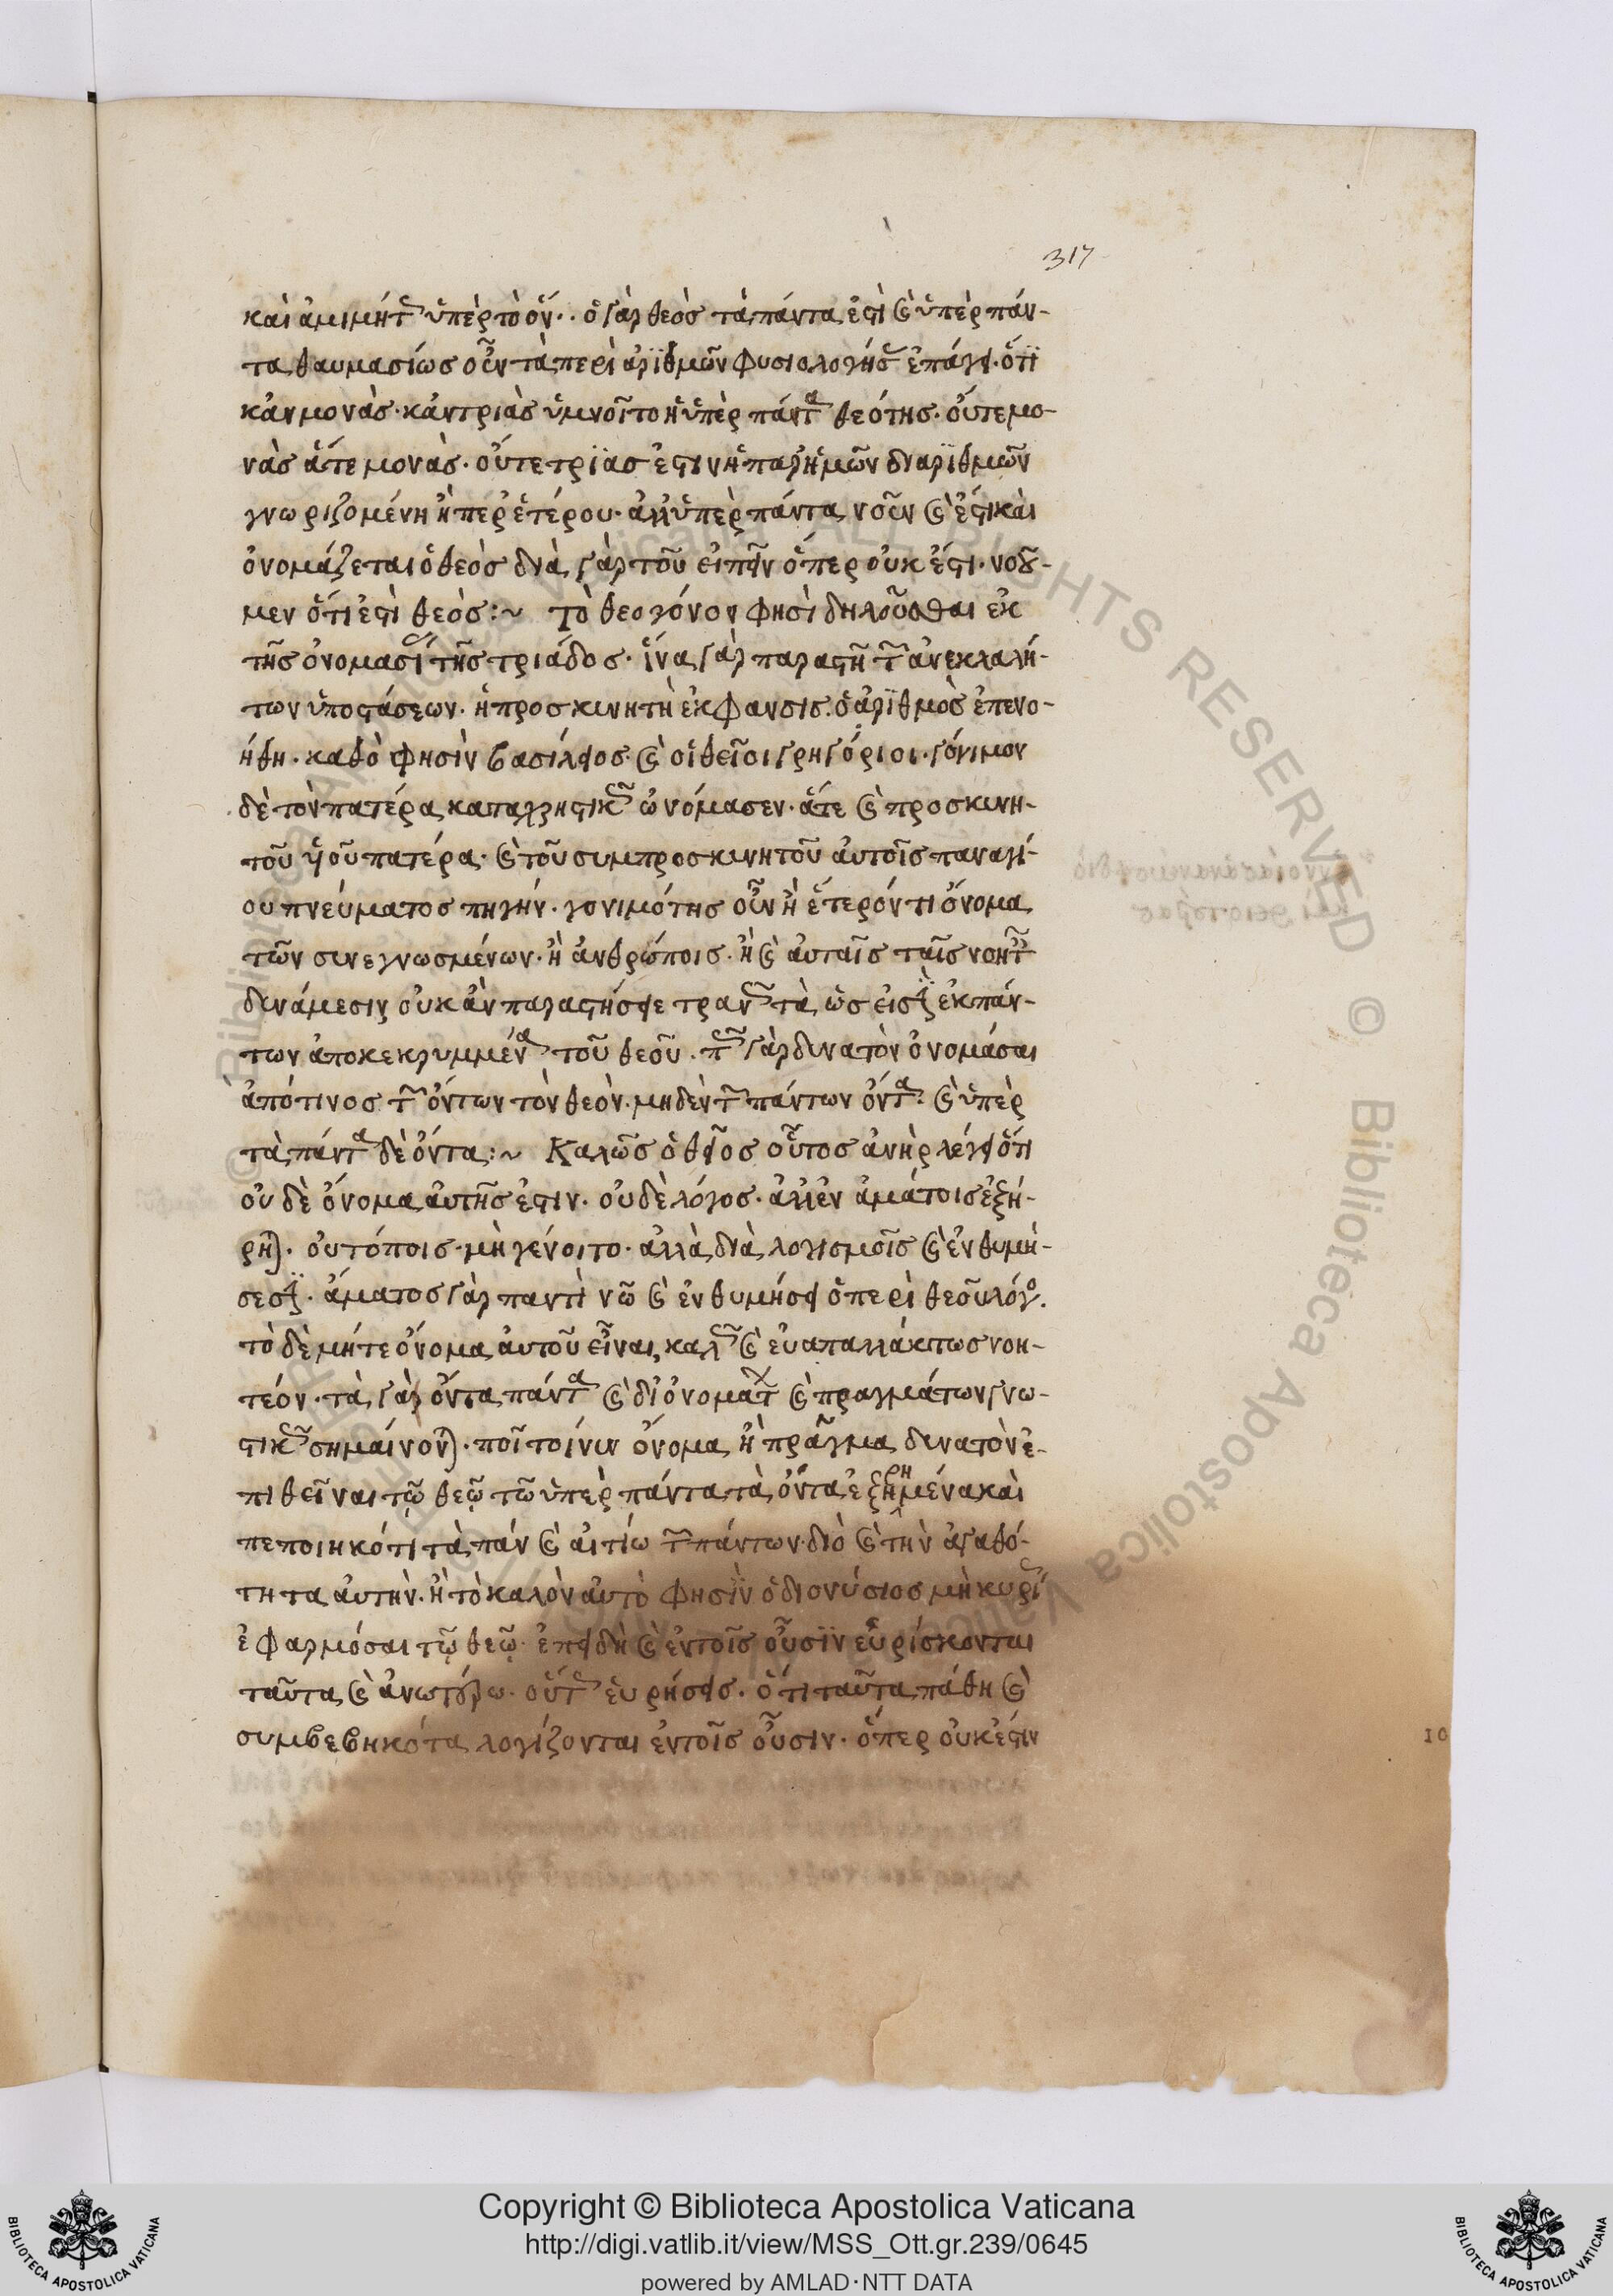 317
καὶ ἀμιμήτως ὑπὲρ τὸ ὄν·. ὁ γὰρ θεὸς τὰ πάντα ἐστὶ καὶ ὑπὲρ πάν-
τα θαυμασίως οὖν τὰ περὶ ἀριθμῶν φυσιολογήσας ἐπάγει. ὅτι
κἂν μονὰς· κἂν τριὰς ὑμνοῖτο ἡ ὑπὲρ πάντα θεότης. οὔτε μο-
νὰς ἅτε μονὰς. οὔτε τριὰς ἐστιν ἡ παρ' ἡμῶν δι' ἀριθμῶν
γνωριζομένη ἢ περ ἑτέρου· ἀλλ' ὑπὲρ πάντα νοῦν καὶ ἔστι καὶ
ὀνομάζεται ὁ θεὸς διὰ γὰρ τοῦ εἰπεῖν ὅπερ οὐκ ἔστι. νοοῦ-
μεν ὅτι ἐστὶ θεὸς:~ Τὸ θεογόνον φησὶ δηλοῦσθαι ἐκ
τῆς ὀνομασίας τῆς τριάδος. ἵνα γὰρ παραστῇ τῶν ἀνεκλαλή-
των ὑποστάσεων. ἡ προσκυνητὴ ἔκφανσις. ὁ ἀριθμὸς ἐπενο-
ήθη. καθὸ φησὶν βασίλειος· καὶ οἱ θεῖοι γρηγόριοι. γόνιμον
δὲ τὸν πατέρα καταλληστικῶς ὠνόμασεν. ἅτε καὶ προσκυνη-
τοῦ υἱοῦ πατέρα· καὶ τοῦ συμπροσκυνητοῦ αὐτοῖς παναγί-
ου πνεύματος πηγήν. γονιμότης οὖν ἢ ἕτερόν τι ὄνομα
τῶν συνεγνωσμένων. ἢ ἀνθρώποις. ἢ καὶ αὐταῖς ταῖς νοηταῖς
δυνάμεσιν οὐκ ἂν παραστήσειε τρανῶς τὰ ὡς εἰσὶν ἐκ πάν-
των ἀποκεκρυμμένα τοῦ θεοῦ. πῶς γὰρ δυνατὸν ὀνομάσαι
ἀπό τινος τῶν ὄντων τὸν θεὸν. μηδὲν τῶν πάντων ὄντα. καὶ ὑπὲρ
τὰ πάντα δὲ ὄντα:~ Καλῶς ὁ θεῖος οὗτος ἀνὴρ λέγει ὅτι
οὐδὲ ὄνομα αὐτῆς ἐστιν. οὐδὲ λόγος. ἀλλ' ἐν ἀβάτοις ἐξή-
ρηται. οὐ τόποις· μὴ γένοιτο. ἀλλὰ διὰ λογισμοῖς καὶ ἐνθυμή-
σεσιν. ἄβατος γὰρ παντὶ νῷ καὶ ἐνθυμήσει ὁ περὶ θεοῦ λόγος.
τὸ δὲ μήτε ὄνομα αὐτοῦ εἶναι, καλῶς καὶ εὐαπαλλάκτως νοη-
τέον. τὰ γὰρ ὄντα πάντα καὶ δι' ὀνομάτων καὶ πραγμάτων γνω-
στικῶς σημαίνονται. ποῖ τοίνυν ὄνομα ἢ πρᾶγμα δυνατὸν ἐ-
πιθεῖναι τῷ θεῷ τῷ ὑπὲρ πάντα τὰ ὄντα ἐξηρημένα καὶ
πεποιηκότι τὰ πάν καὶ αἰτίω τῶν πάντων· διὸ καὶ τὴν ἀγαθό-
τητα αὐτὴν. ἢ τὸ καλὸν αὐτὸ φησὶν ὁ διονύσιος μὴ κυρίως
ἐφαρμόσαι τῷ θεῷ. ἐπειδὴ καὶ ἐν τοῖς οὖσιν εὑρίσκονται
ταῦτα καὶ ἀνωτέρω. οὕτως εὑρήσεις. ὅτι ταῦτα πάθη καὶ
συμβεβηκότα λογίζονται ἐν τοῖς οὖσιν. ὅπερ οὐκ ἔστιν
Copyright © Biblioteca Apostolica Vaticana
http://digi.vatlib.it/view/MSS_Ott.gr.239/0645
powered by AMLAD·NTT DATA
BIBLIOTECA APOSTOLICA VATICANA
BIBLIOTECA APOSTOLICA VATICANA